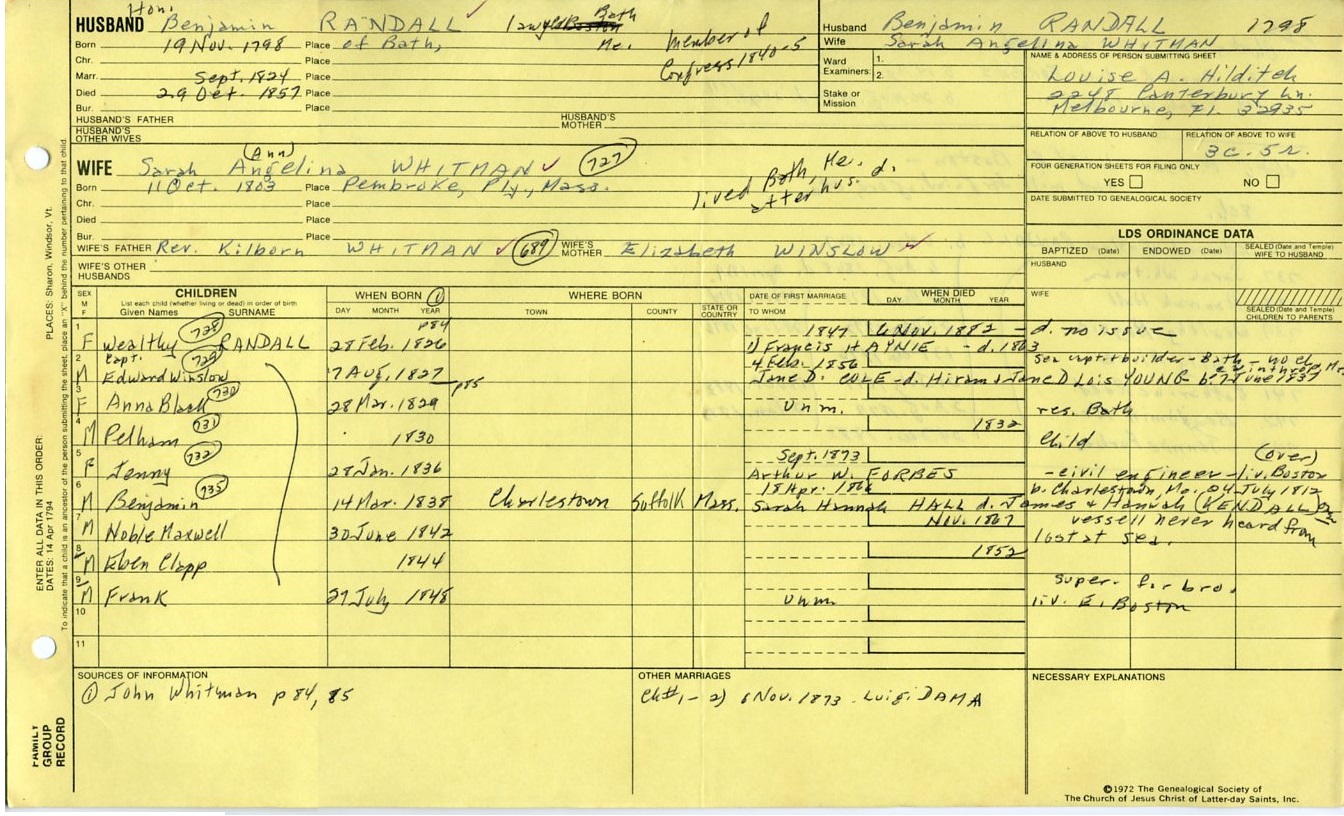 Hon.
HUSBAND Benjamin RANDALL lawyer Boston Bath Me. Member of Congress 1840-5
Born 19 Nov. 1798 Place of Bath,
Chr. Place
Marr. Sept. 1824 Place
Died 29 Oct. 1857 Place
Bur. Place
HUSBAND'S FATHER HUSBAND'S MOTHER
HUSBAND'S OTHER WIVES
Husband Benjamin RANDALL 1798
Wife Sarah Angelina WHITMAN
Ward Examiners: 1. 2.
Stake or Mission
NAME & ADDRESS OF PERSON SUBMITTING SHEET
Louise A. Hilditch
2248 Canterbury Ln.
Melbourne, Fl. 32935
RELATION OF ABOVE TO HUSBAND RELATION OF ABOVE TO WIFE
3c. 5r.
FOUR GENERATION SHEETS FOR FILING ONLY
YES NO
DATE SUBMITTED TO GENEALOGICAL SOCIETY
(Ann)
WIFE Sarah Angelina WHITMAN 727
Born 11 Oct. 1803 Place Pembroke, Ply., Mass.
lived Bath, Me. after hus. d.
Chr. Place
Died Place
Bur. Place
WIFE'S FATHER Rev. Kilborn WHITMAN 689 WIFE'S MOTHER Elizabeth WINSLOW
WIFE'S OTHER HUSBANDS
LDS ORDINANCE DATA
BAPTIZED (Date) ENDOWED (Date) SEALED (Date and Temple) WIFE TO HUSBAND
HUSBAND
WIFE
SEALED (Date and Temple) CHILDREN TO PARENTS
SEX M F CHILDREN List each child (whether living or dead) in order of birth Given Names SURNAME
WHEN BORN 1 DAY MONTH YEAR
WHERE BORN TOWN COUNTY STATE OR COUNTRY
DATE OF FIRST MARRIAGE TO WHOM
WHEN DIED DAY MONTH YEAR
1 F Wealthy 728 RANDALL 28 Feb. 1826 p84 1847 6 Nov. 1882 - d. no issue
1) Francis HAYNIE - d. 1863
2 M Capt. Edward Winslow 729 7 Aug. 1827 p85 4 Feb. 1856 Sea capt. + builder - Bath - no ch
Jane D. COLE - d. Hiram & Jane D Lois YOUNG b. 7 June 1837
3 F Anna Black 730 28 Mar. 1829 Unm. res. Bath
4 M Pelham 731 1830 1832 Child
5 F Jenny 732 28 Jan. 1836 Sept. 1873 (over)
Arthur W. FORBES - civil engineer - liv. Boston
6 M Benjamin 735 14 Mar. 1838 Charlestown Suffolk Mass. 18 Apr. b. Charlestown, Me. 24 July 1812
Sarah Hannah HALL d. James & Hannah (KENDALL)
7 M Noble Maxwell 30 June 1842 Nov. 1867 vessell never heard from
lost at sea.
8 M Eben Clapp 1844 1852
9 M Frank 27 July 1848 Unm. super. for bro.
liv. E. Boston
10
11
SOURCES OF INFORMATION
1 John Whitman p 84, 85
OTHER MARRIAGES
Ch#1 - 2) 6 Nov. 1873 Luigi DAMA
NECESSARY EXPLANATIONS
PLACES: Sharon, Windsor, Vt.
ENTER ALL DATA IN THIS ORDER:
DATES: 14 Apr 1794
To indicate that a child is an ancestor of the person submitting the sheet, place an "X" behind the number pertaining to that child.
FAMILY GROUP RECORD
©1972 The Genealogical Society of
The Church of Jesus Christ of Latter-day Saints, Inc.